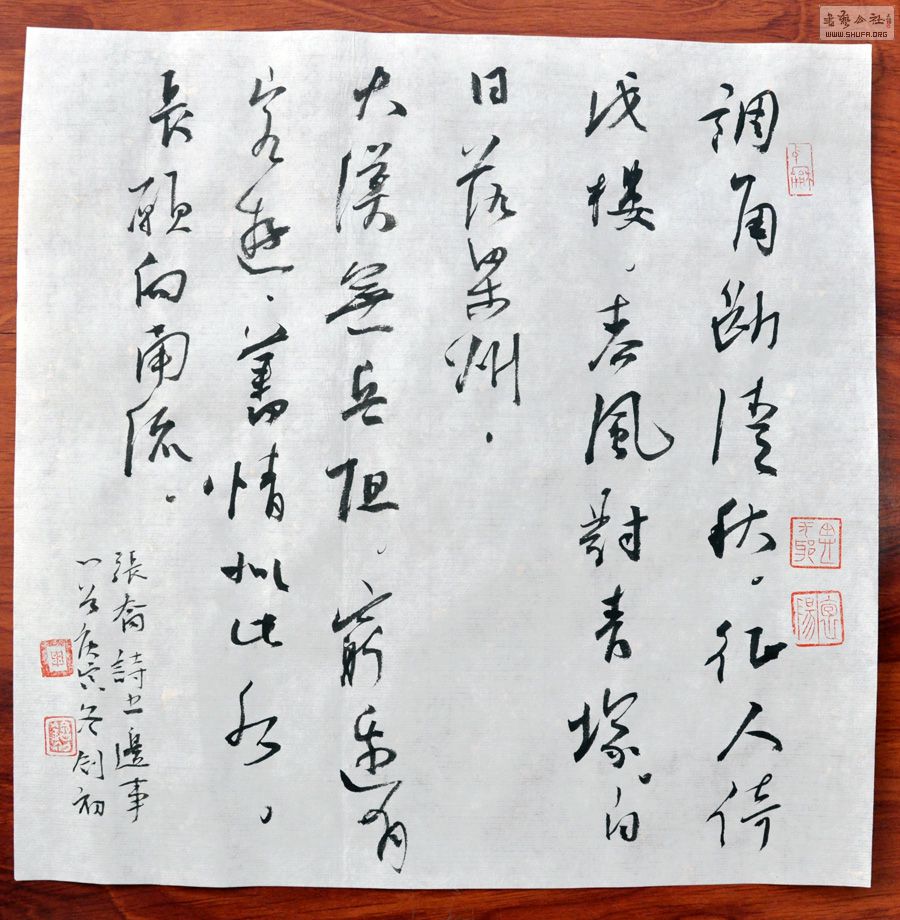 書藝公社
WWW.SHUFA.ORG
調角斷清秋。征人倚
戍樓。春風對青塚。白
日落梁州。
大漠無兵阻。窮邊有
客遊。蕃情似此水。
長願向南流。
張喬詩書邊事
庚寅冬劍初